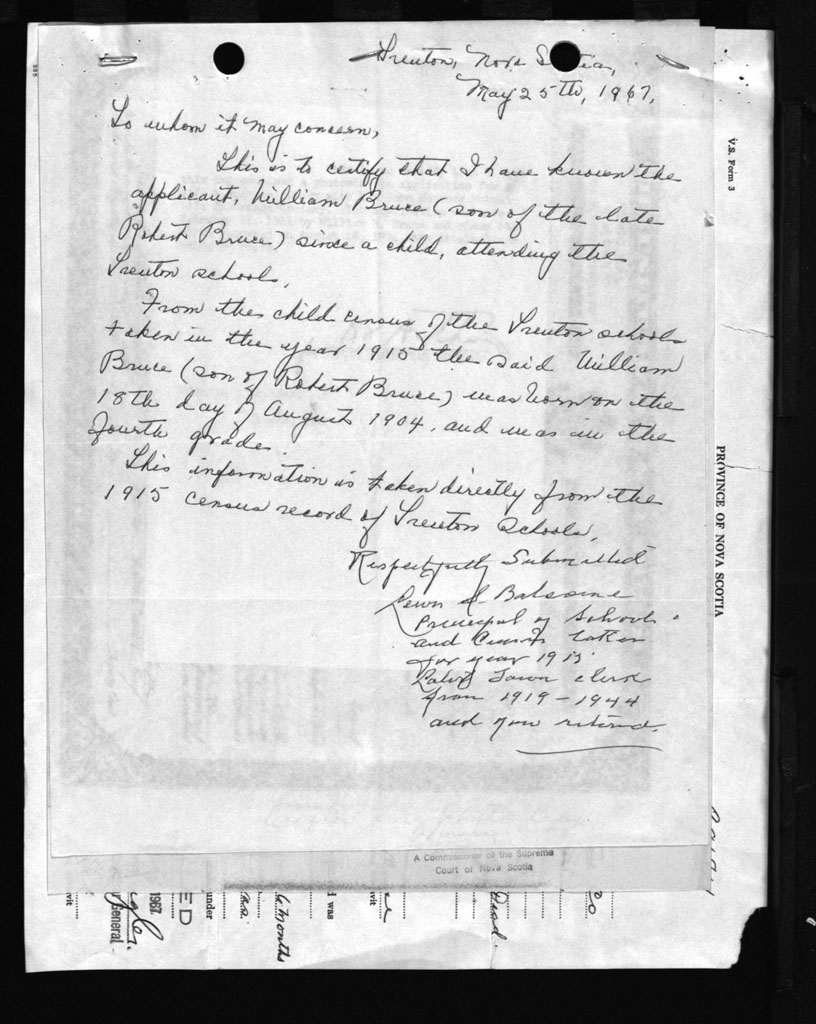 Trenton, Nova Scotia,
May 25th, 1967,
To whom it may concern,
This is to certify that I have known the
applicant, William Bruce (son of the late
Robert Bruce) since a child, attending the
Trenton schools,
From the child census of the Trenton schools
taken in the year 1915 the said William
Bruce (son of Robert Bruce) was born on the
18th day of August 1904, and was in the
fourth grade.
This information is taken directly from the
1915 census record of Trenton Schools,
Respectfully Submitted
Principal of Schools
and Census taker
for year 1915
Town clerk
from 1919-1944
and now retired.
A Commissioner of the Supreme
Court of Nova Scotia
V.S. Form 3
PROVINCE OF NOVA SCOTIA
Dead.
I was
6 months
under
ED
1967
General